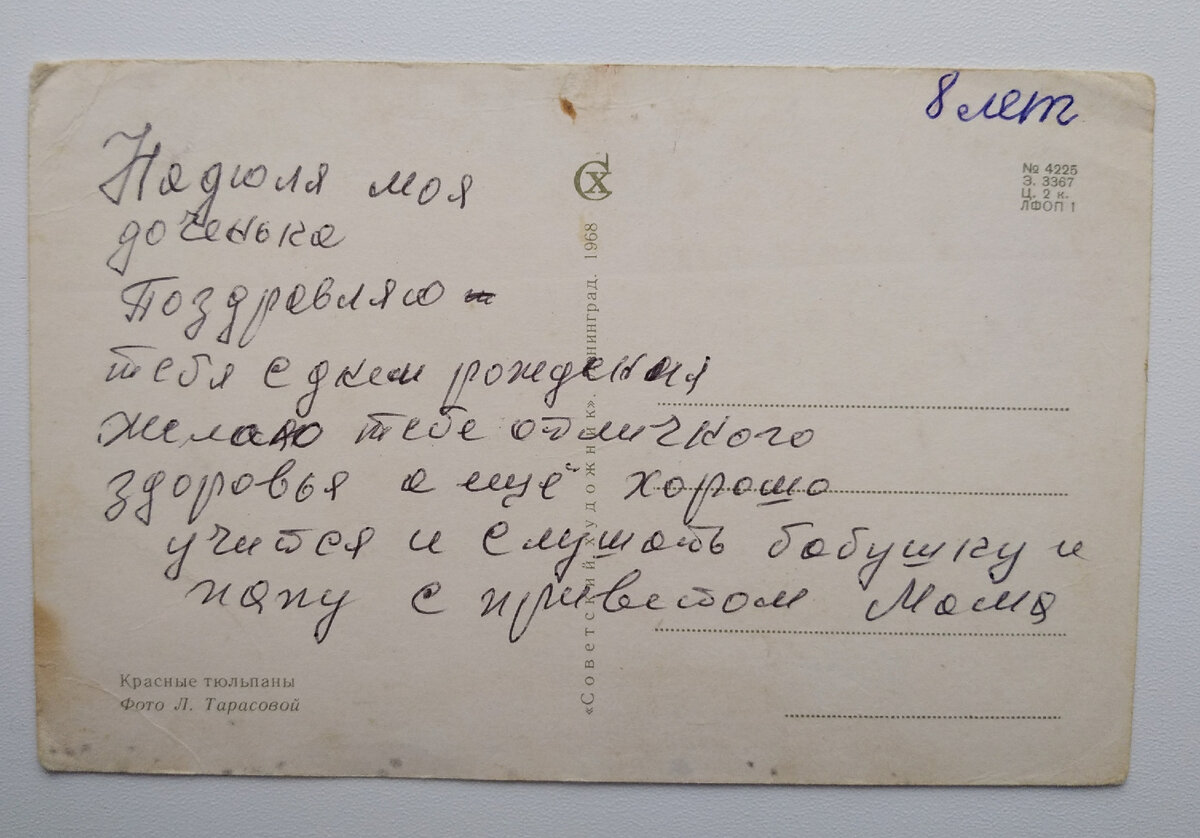 8 лет
№ 4225
Э. 3367
Ц. 2 к.
ЛФОП 1
Надюля моя
доченька
Поздравляю
тебя с днем рождения
желаю тебе отличного
здоровья а ещё хорошо
учится и слушать бабушку и
папу с приветом Мама
«Советский художник». Ленинград. 1968
Красные тюльпаны
Фото Л. Тарасовой